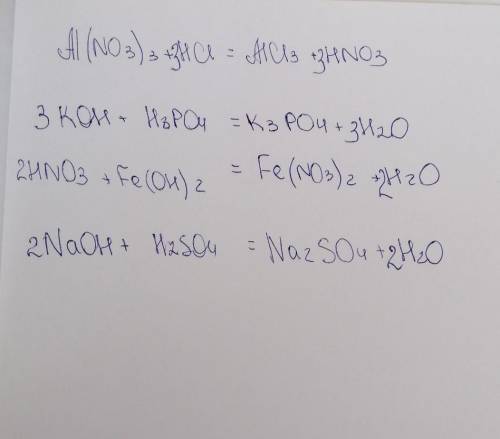 Al(NO3)3 +3HCl = AlCl3 +3HNO3
3KOH + H3PO4 = K3PO4 + 3H2O
2HNO3 + Fe(OH)2 = Fe(NO3)2 +2H2O
2NaOH + H2SO4 = Na2SO4 +2H2O